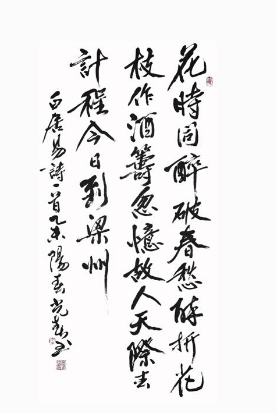 花時同醉破春愁醉折花
枝作酒籌忽憶故人天際去
計程今日到梁州
白居易詩一首乙未陽春光书